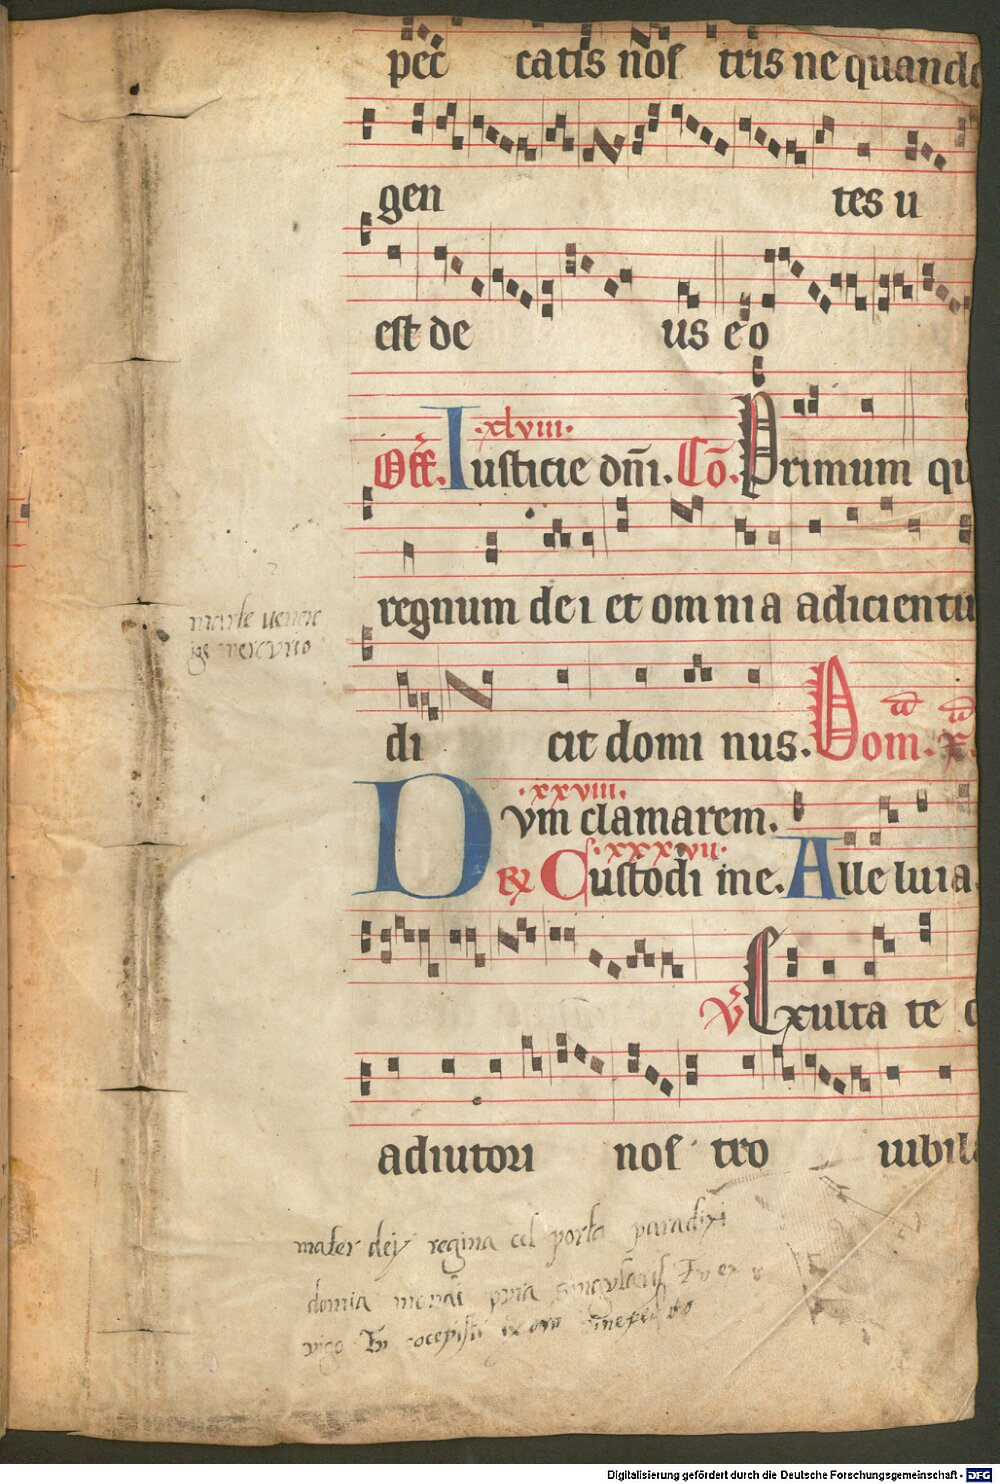 pec catis nos tris ne quando
gen tes u
est de us e o
Off. Iusticie dñi. ·xlviii· Cō. Primum qu
regnum dei et omnia adicientu
di cit domi nus. Dom. x.
Dvm clamarem. ·xxviii·
R Custodi me. ·xxxvii· Alleluia
V Exulta te
adiutori nos tro iubila
marte venere
mercurio
mater dey regina cel porta paradixi
domia mondi pura singularis Tv es
vigo Tv
Digitalisierung gefördert durch die Deutsche Forschungsgemeinschaft - DFG